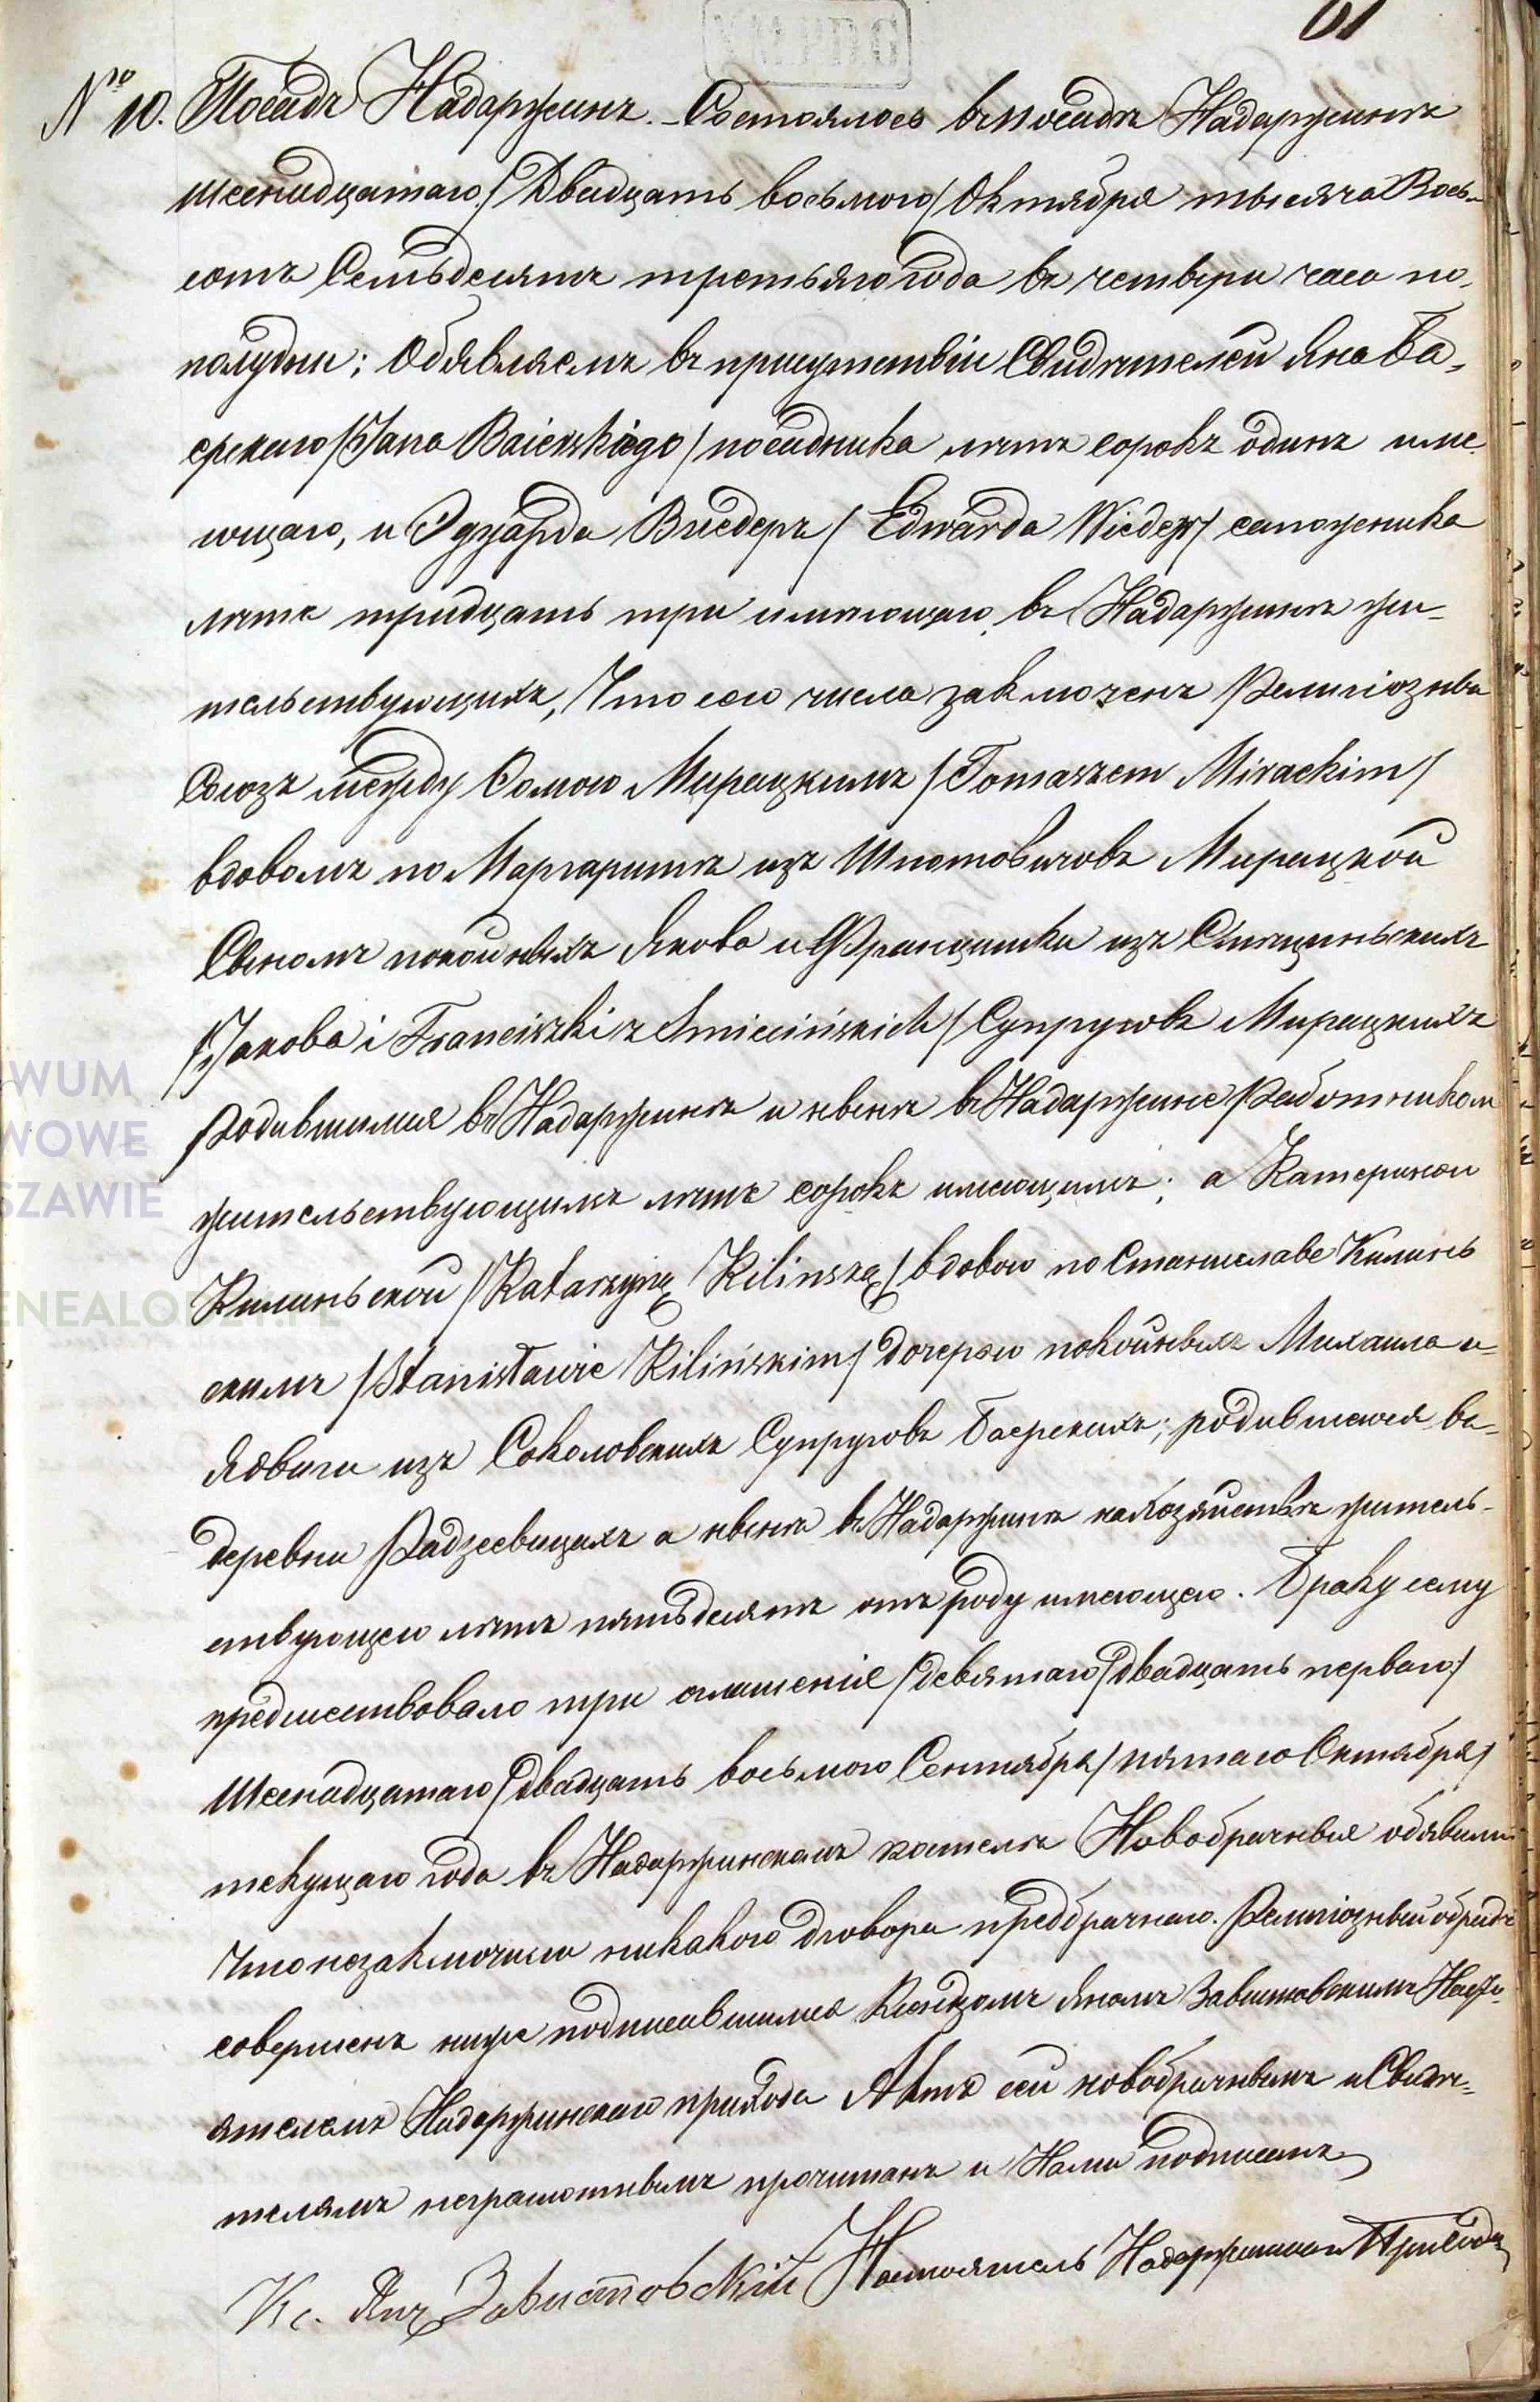 61
№ 10. Посадъ Надаржинъ. – Состоялось въ посадѣ Надаржинѣ
шеснадцатаго / Двадцать восьмого / Октября тысяча Вось-
сотъ Семьдесятъ третьяго года въ четвери часа по-
полудни; Обявляемъ въ присутствіи Свидѣтелей Яна Ба-
ерскаго / Jana Baierskiego / посадника лѣтъ сорокъ одинъ име-
ющаго, и Эдуарда Виедеръ / Edwarda Wieder / сапожника
лѣтъ тридцать три имѣющаго, въ Надаржинѣ жи-
тельствующихъ, Что сего числа заключенъ Религіозны
Союзъ между Ѳомою Мирацкимъ / Tomaszem Mirackim /
вдовомъ по Маргаритѣ изъ Шпотовичовъ Мирацкой
Сыномъ покойныхъ Якова и Францишки изъ Смѣцинскихъ
/ Jakoba i Franciszki z Smiecińskich / Супруговъ Мирацкихъ
родившимся въ Надаржинѣ и нынѣ въ Надаржине Работником
жительствующимъ лѣтъ сорокъ имеющимъ; а Катериною
Килиньской / Katarzyną Kilinską / вдовою по Станиславе Килинь
скимъ / Stanisławie Kilińskim / дочерью покойныхъ Михаила и-
Ядвиги изъ Соколовскихъ Супруговъ Баерскихъ; родившеюся въ-
деревни Радзеевицахъ а нынѣ въ Надаржинѣ на хозяйствѣ житель-
ствующею лѣтъ пятьдесятъ отъ роду имеющею. Браку сему
предшествовало три оглашеніе / девятаго / двадцать перваго /
Шеснадцатаго / двадцать восьмого Сентября / пятаго Октября /
текущаго года въ Надаржинскомъ костелѣ Новобрачныя обявили
Что не заключили никакого договора предбрачнаго. Религіозный обрядъ
совершенъ ниже подписавшимся Ксендзомъ Яномъ Завистовскимъ Насто-
ятелемъ Надаржинскаго прихода Актъ сей новобрачнымъ и Свидѣ-
телямъ неграмотнымъ прочитанъ и Нами подписанъ
Кс. Янъ Завистовскій Настоятель Надаржинскаго Прихода
WUM
WOWE
SZAWIE
ENEALODZY.PL